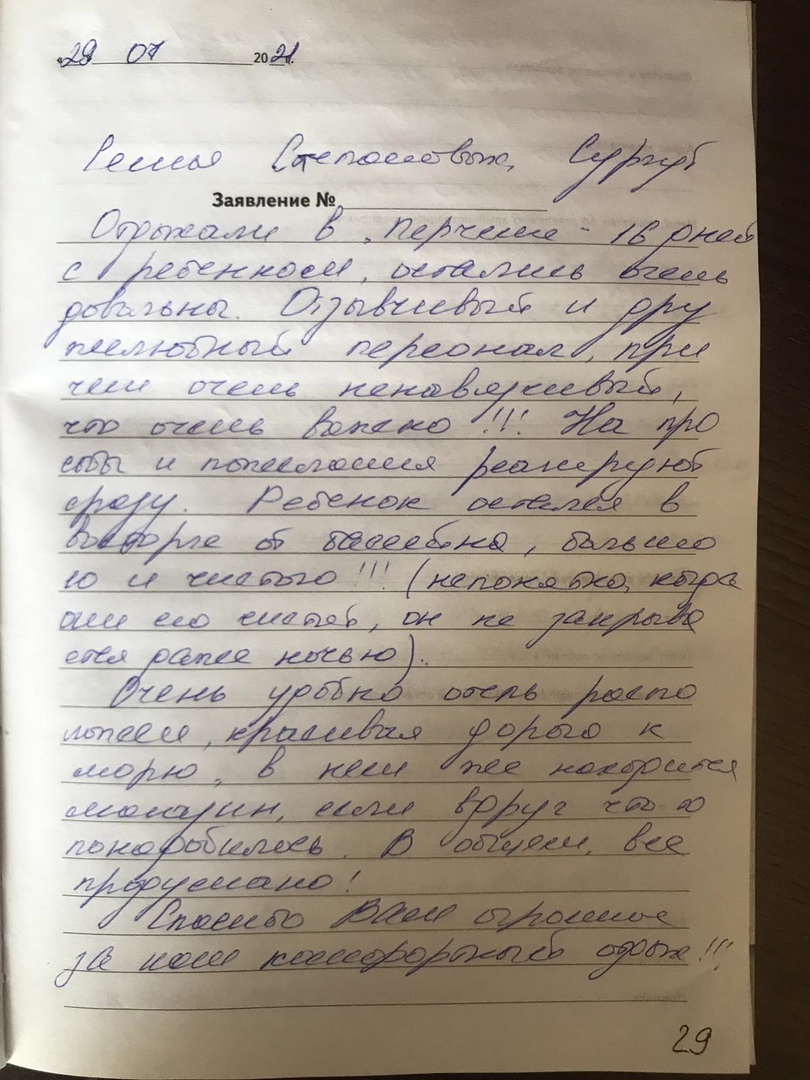 «29 07 2021.
Семья Степановых, Сургут
Заявление №
Отдыхали в „Перчеме" 16 дней
с ребенком, остались очень
довольны. Отзывчивый и дру
желюбный персонал, при
чем очень ненавязчивый,
что очень важно!!! На про
сьбы и пожелания реагируют
сразу. Ребенок остался в
восторге от бассейна, большо
го и чистого!!! (непонятно, когда
они его чистят, он не закрыва
ется даже ночью).
Очень удобно отель распо
ложен, красивая дорога к
морю, в нем же находится
магазин, если вдруг что-то
понадобилось. В общем, все
продумано!
Спасибо Вам огромное
за наш комфортный отдых!!!
29